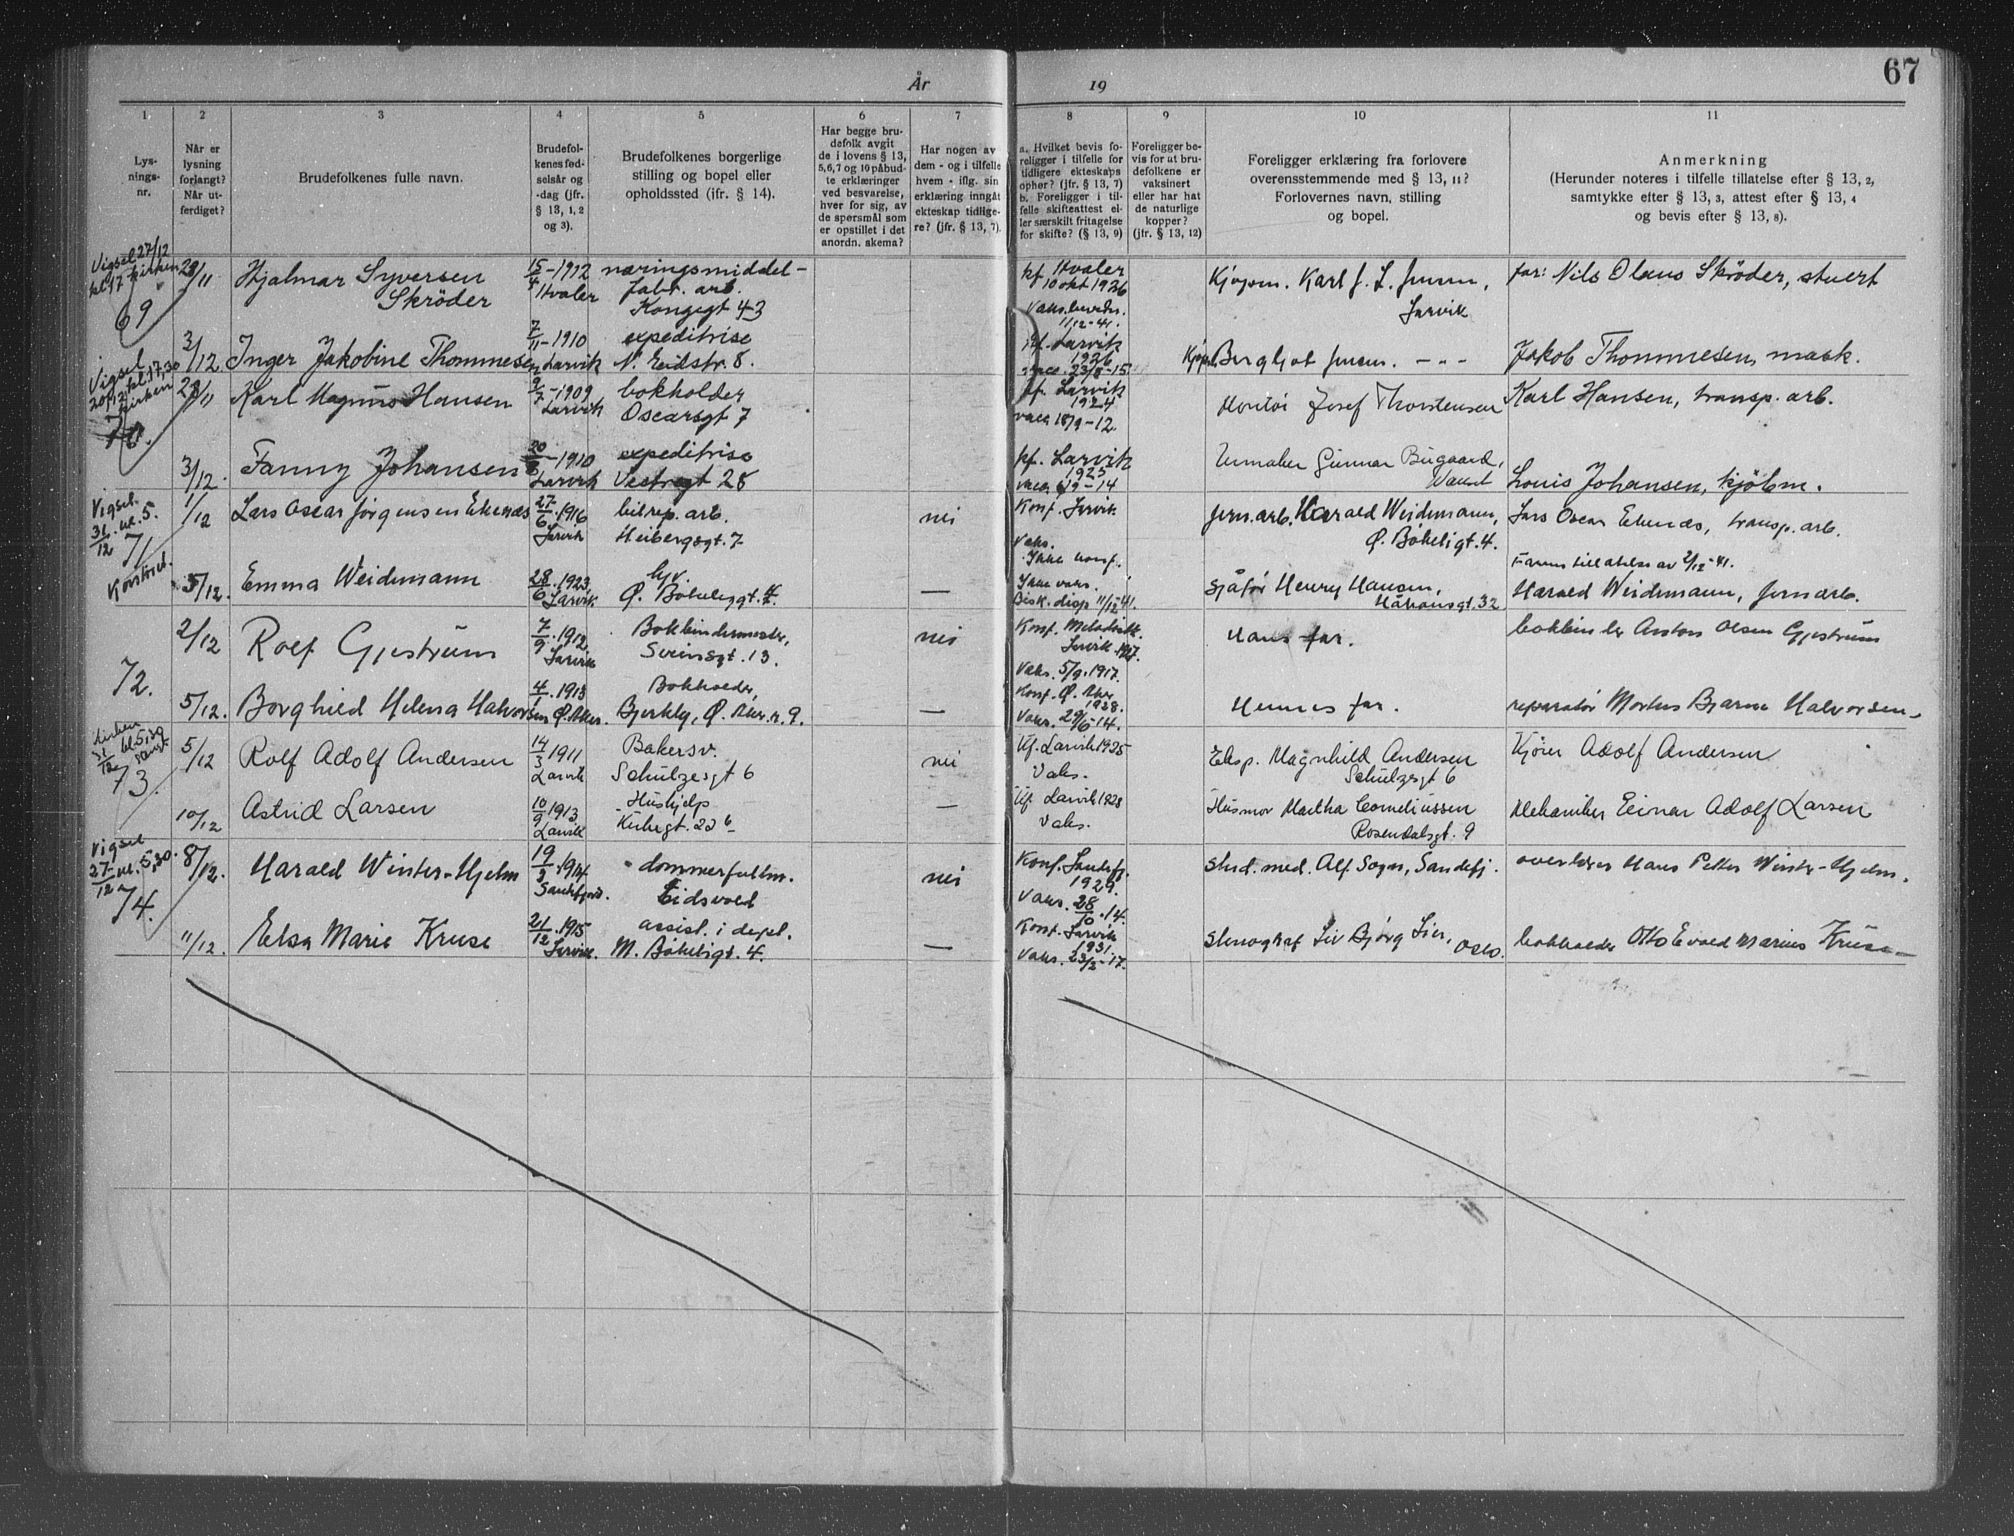 67
År 19
1 2 3 4 5 6 7 8 9 10 11
Lys-
nings-
nr.
Når er
lysning
forlangt?
Når ut-
ferdiget?
Brudefolkenes fulle navn.
Brudefol-
kenes fød-
selsår og
-dag (jfr.
§ 13, 1, 2
og 3).
Brudefolkenes borgerlige
stilling og bopel eller
opholdssted (ifr. § 14).
Har begge bru-
defolk avgit
de i lovens § 13,
5,6,7 og 10 påbud-
te erklæringer
ved besvarelse,
hver for sig, av
de spørsmål som
er opstillet i det
anordn. skema?
Har nogen av
dem - og i tilfelle
hvem - iflg. sin
erklæring inngåt
ekteskap tidlige-
re? (jfr. § 13, 7).
a. Hvilket bevis fo-
religger i tilfelle for
tidligere ekteskaps
ophør? (jfr. § 13, 7)
b. Foreligger i til-
felle skifteattest el-
ler særskilt fritagelse
for skifte? (§ 13, 9)
Foreligger be-
vis for at bru-
defolkene er
vaksinert
eller har hat
de naturlige
kopper?
(jfr. § 13, 12)
Foreligger erklæring fra forlovere
overensstemmende med § 13, 11?
Forlovernes navn, stilling
og bopel.
Anmerkning
(Herunder noteres i tilfelle tillatelse efter § 13, 2,
samtykke efter § 13, 3, attest efter § 13, 4
og bevis efter § 13, 8).
Vigsel 27/12
kl. 17 kirken
69
28/11
Hjalmar Syversen
Skröder
15/4-1912
Hvaler
næringsmiddel-
fabr. arb.
Kongegt 43
kf. Hvaler
10 okt 1926
11/12-41.
Kjøpm. Karl J. L. Jensen,
Larvik
far: Nils Olaus Skröder, stuert
3/12
Inger Jakobine Thommesen
7/11-1910
Larvik
expeditrise
N. Eidstr. 8.
kf. Larvik
1926
23/8-15.
Kjøpm. Bergljot Jensen. - " -
Jakob Thommesen, mask.
Vigsel
20/12 kl. 17,30
kirken
70.
28/11
Karl Magnus Hansen
9/7-1909
Larvik
bokholder
Oscarsgt 7
kf. Larvik
1924
vacc 18/9-12.
Montør Josef Thorstensen
Karl Hansen, transp. arb.
3/12.
Fanny Johansen
20/8-1910
Larvik
expeditrise
Vestregt 28
kf. Larvik
1925
vacc 6/9-14
Urmaker Gunnar Bugaard,
Louis Johansen, kjölm.
Vigsel.
31/12 kl. 5.
71
1/12
Lars Oscar Jørgensen Ekenæs
27/6.1916
Larvik
bilrep. arb.
Heibergsgt. 7
nei
Konf. Larvik
Vaks.
Jern. arb. Harald Weidemann,
Ø. Bøkeligt. 4.
Lars Oscar Ekenæs, transp. arb.
5/12.
Emma Weidemann
28/6.1923,
Larvik
hjv.
Ø. Bøkeligt. 4.
—
Ikke konf.
Ikke vaks.
Bisk. disp 11/12-41.
Sjåfør Henry Hansen,
Håkonsgt. 32
Farens tillatelse av 2/12-41.
Harald Weidemann, jernarb.
72.
2/12
Rolf Gjestrum
7/9.1912
Larvik
Bokbindermester,
Sveinsgt. 13.
nei
Konf. Metodistk.
Larvik 1927.
Vaks. 5/9.1917.
Hans far.
bokbinder Anton Olsen Gjestrum
5/12.
Borghild Helena Halvorsen
4/1.1913
Ø. Aker.
Bokholder,
Bjerkely, Ø. Aker. n. 9.
—
Konf. Ø. Aker
1928.
Vaks. 29/6-14.
Hennes far.
reparatør Mortus Bjarne Halvorsen
Kirken
31/12 kl. 5,30
73.
5/12
Rolf Adolf Andersen
14/3 1911
Larvik
Bakersv.
Schultzesgt 6
nei
Kf. Larvik 1925
Vaks.
Eksp. Magnhild Andersen
Schulzesgt 6
Kjører Adolf Andersen
10/12
Astrid Larsen
10/9 1913
Larvik
Hushjelp
Kirkegt. 22 b
—
Kf. Larvik 1928
Vaks.
Husmor Martha Corneliussen
Rosendalsgt. 9
Mekaniker Einar Adolf Larsen
Vigsel
27/12 kl. 5,30.
74.
8/12.
Harald Winter-Hjelm
19/3.1914
Sandefjord.
dommerfullm.
Eidsvold
nei
Konf. Sandefj.
1929.
Vaks. 28/10.14.
stud. med. Alf Sogn, Sandefj.
overlærer Hans Petter Winter-Hjelm.
11/12.
Elsa Marie Kruse
21/12.1915
Larvik.
assist. i dept.
M. Bøkeligt. 4.
—
Konf. Larvik
1931.
Vaks. 23/2-17.
Stenograf Liv Bjørg Lier,
Oslo.
bokholder Otto Evald Marius Kruse